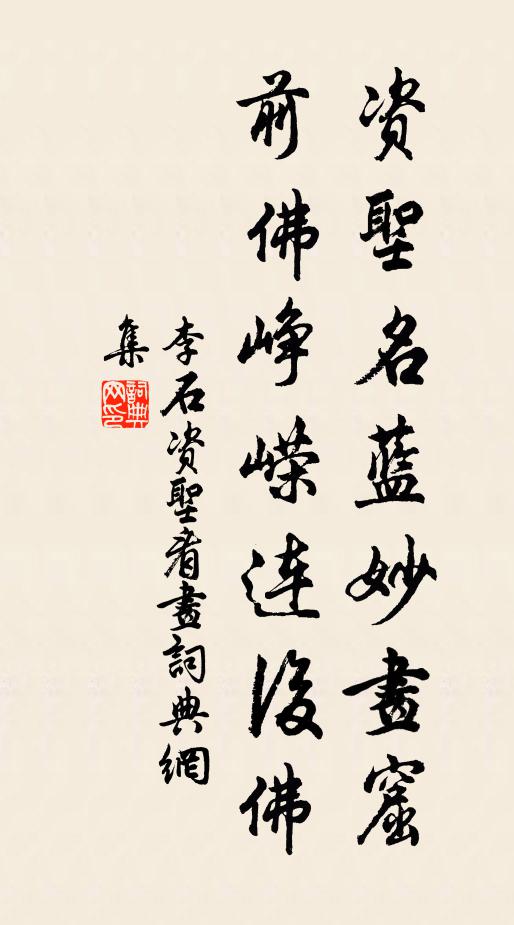 资聖名藍妙畫窟
前佛崢嶸連後佛
李石资聖看畫詞典網
集
詞典网印